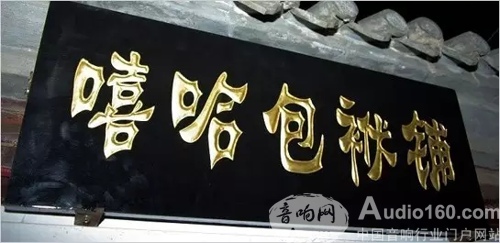 嘻哈包袱铺
音响网
Audio160.com
中国音响行业门户网站